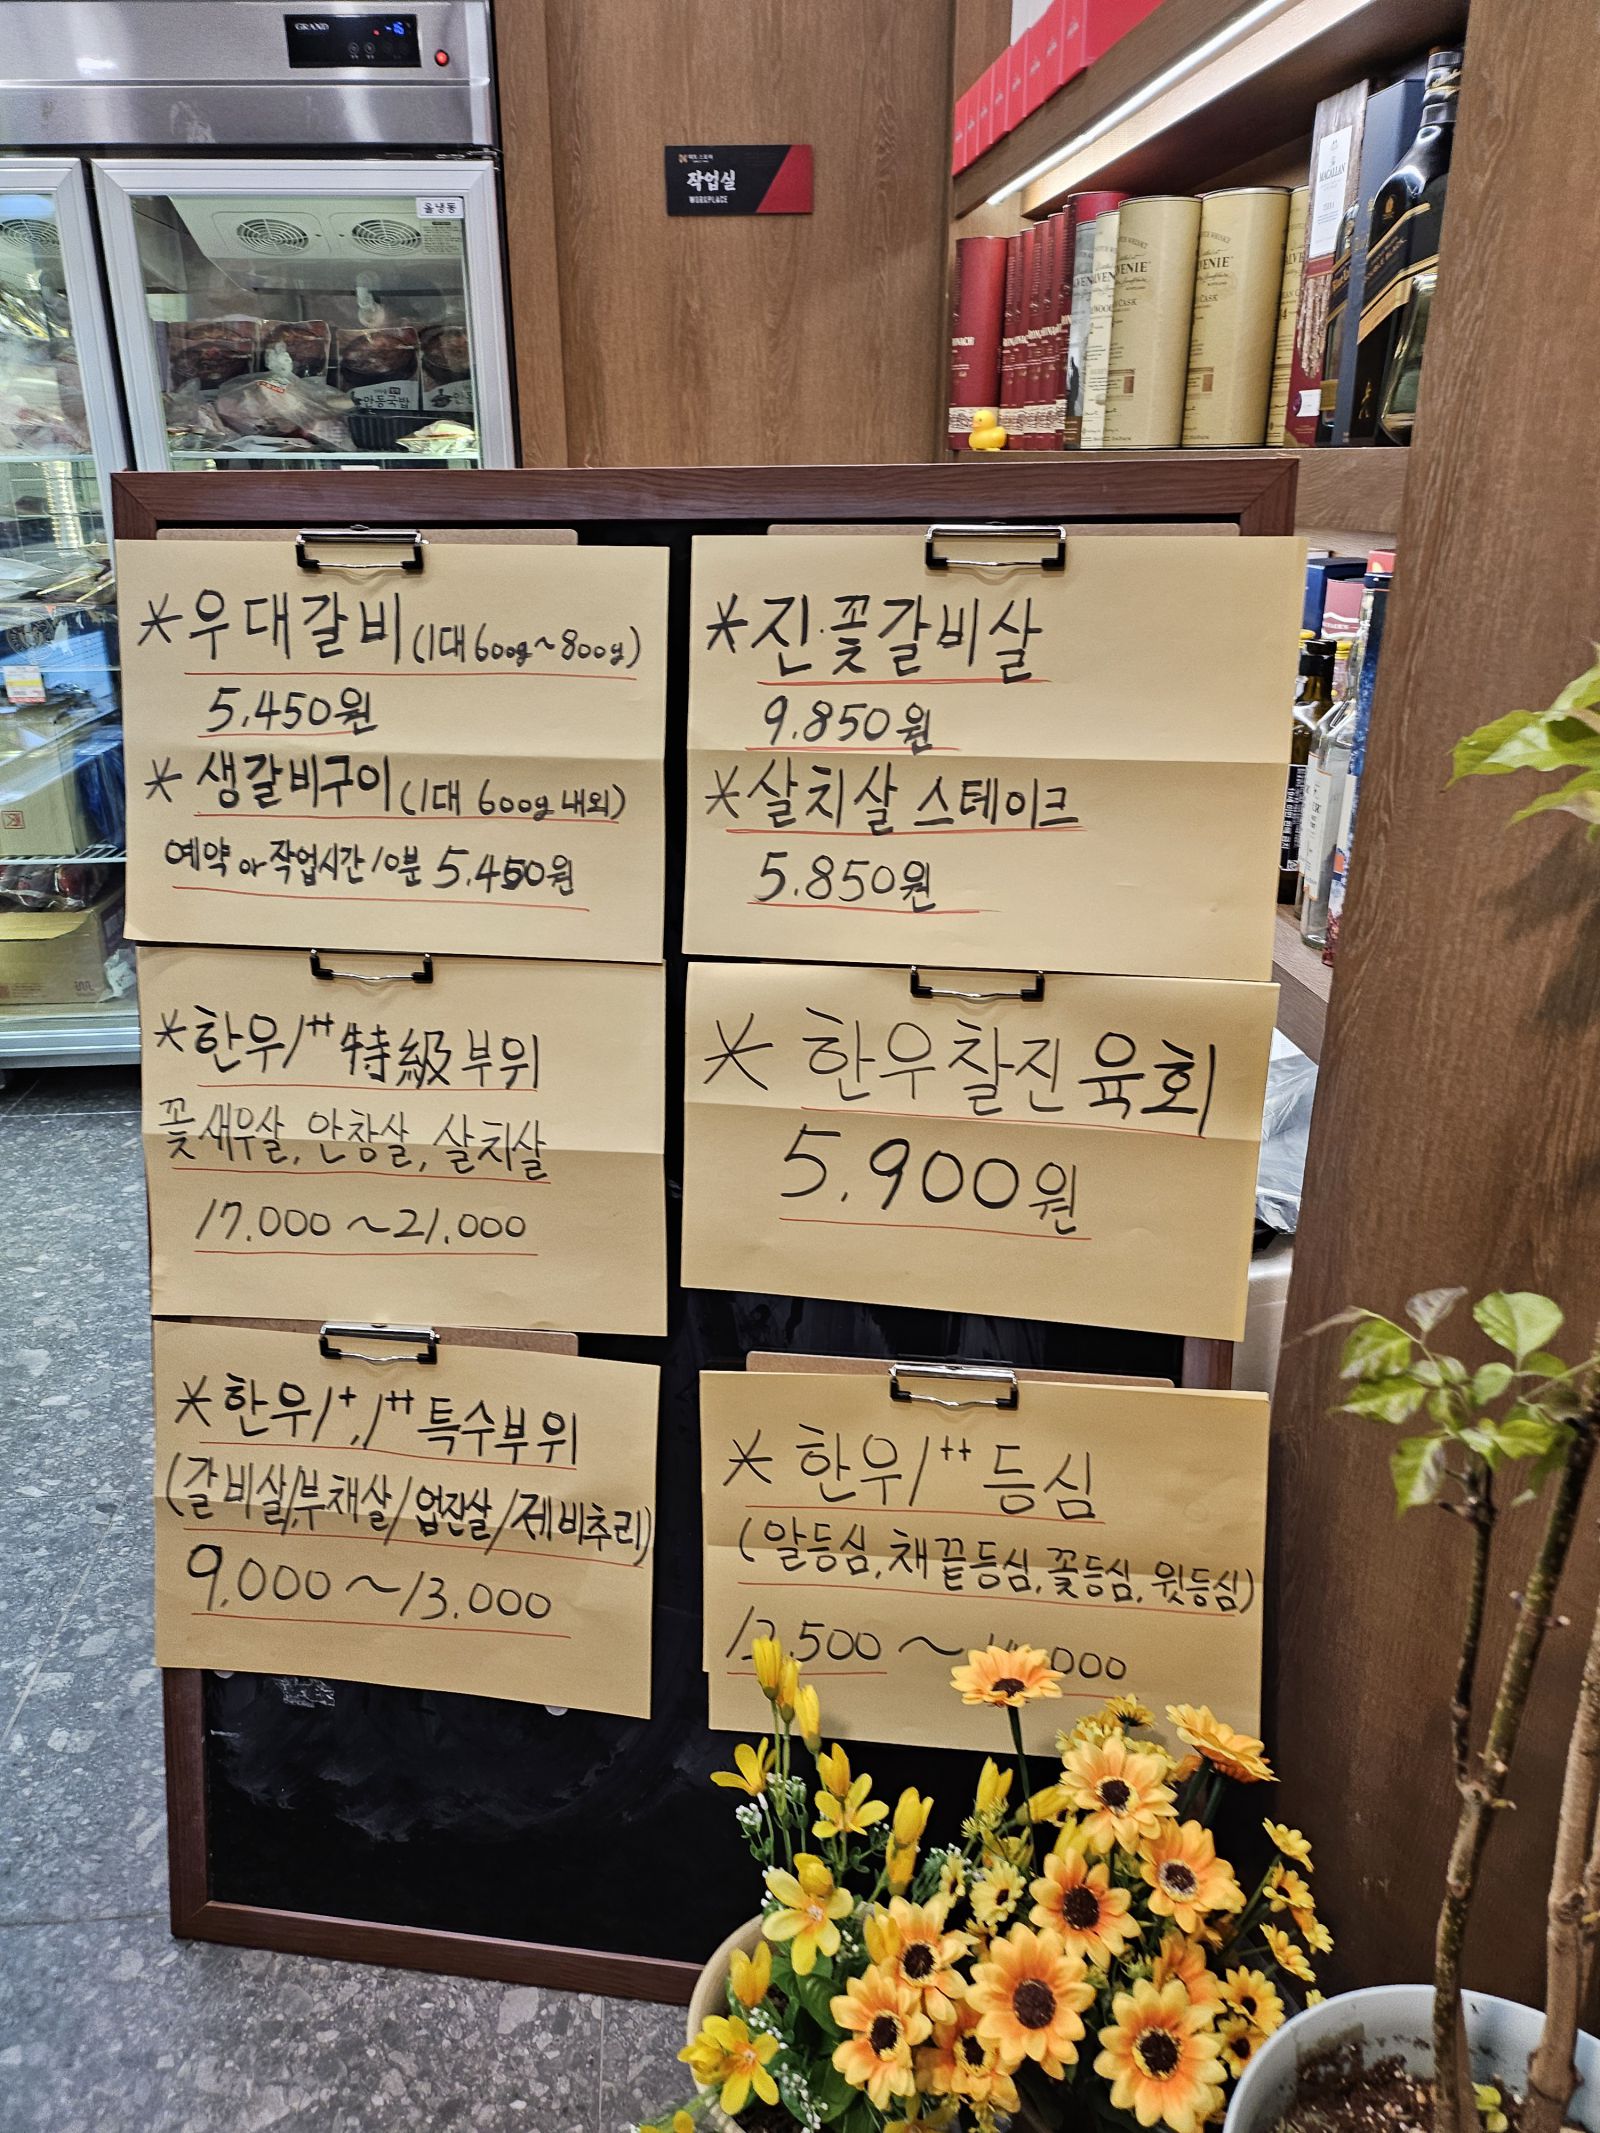 GRAND
-16
올냉동
안동국밥
작업실
WORKPLACE
MACALLAN
* 우대갈비 (1대 600g~800g)
5.450원
* 생갈비구이 (1대 600g 내외)
예약 or 작업시간 10분 5.450원
* 진.꽃갈비살
9.850원
* 살치살 스테이크
5.850원
* 한우1++ 特級부위
꽃새우살, 안창살, 살치살
17.000~21.000
* 한우찰진육회
5.900원
* 한우1+,1++ 특수부위
(갈비살/부채살/업진살/제비추리)
9.000~13.000
* 한우1++ 등심
(알등심, 채끝등심, 꽃등심, 윗등심)
.500~
000